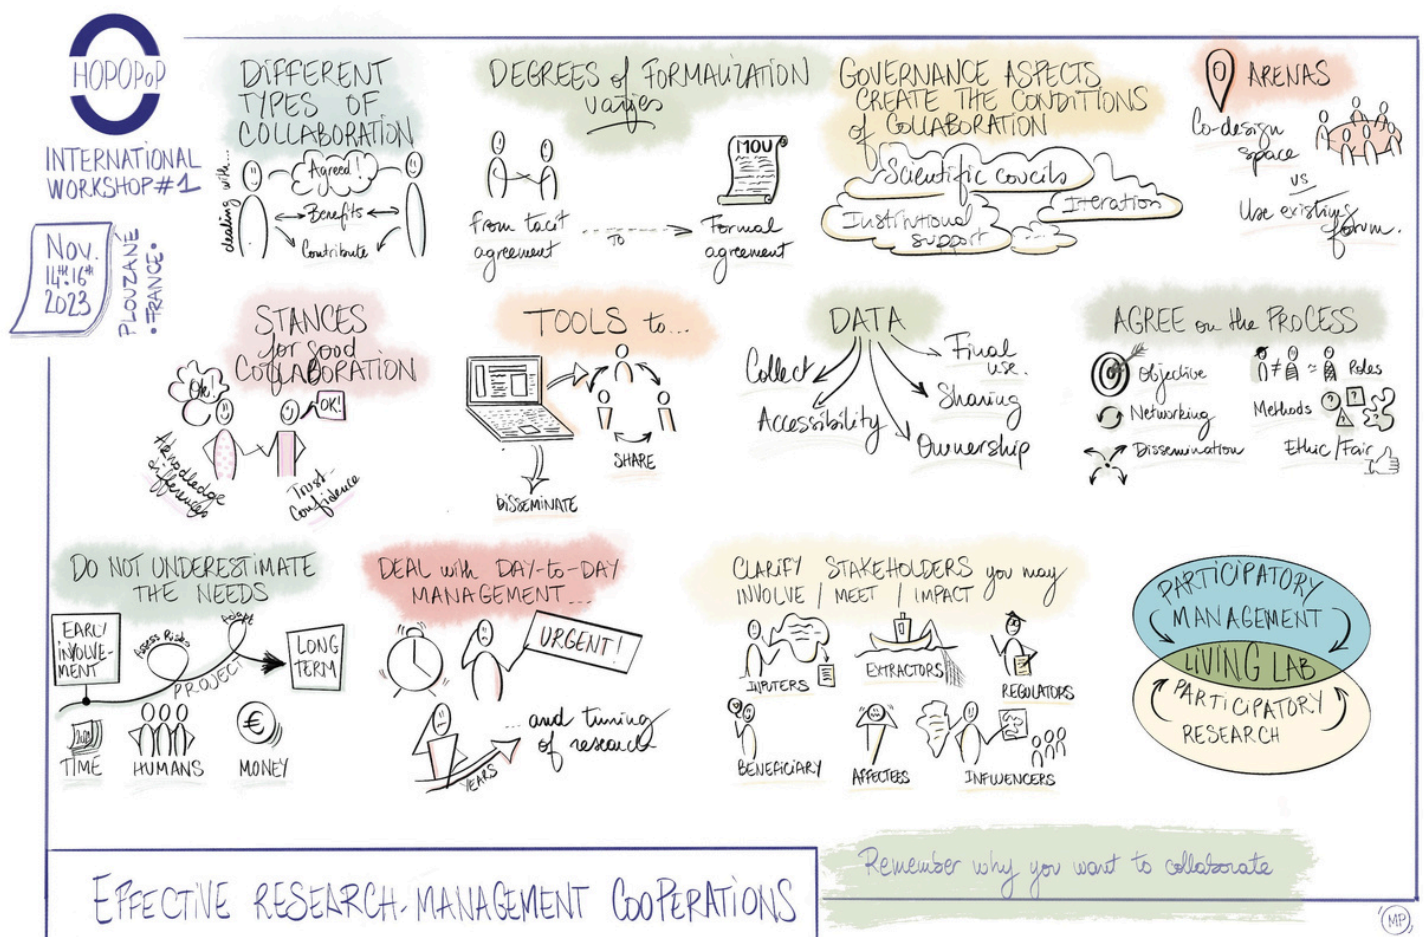 HOPOPoP
INTERNATIONAL
WORKSHOP #1
NOV.
14th.16th
2023
PLOUZANÉ
• FRANCE •
DIFFERENT
TYPES OF
COLLABORATION
dealing with...
Agreed!
Benefits
Contribute
DEGREES of FORMALIZATION
varies
From tacit
agreement
TO
MOU
Formal
agreement
GOVERNANCE ASPECTS
CREATE THE CONDITIONS
of COLLABORATION
Scientific councils
Institutional
support
Iteration
...
ARENAS
Co-design
space
VS
Use existing
forum.
STANCES
for good
COLLABORATION
Ok!
OK!
Aknodledge
differences
Trust
Confidence
TOOLS to...
SHARE
DISSEMINATE
DATA
Collect
Accessibility
Final
use.
Sharing
Ownership
AGREE on the PROCESS
Objective
Networking
Dissemination
Roles
Methods
Ethic/Fair
DO NOT UNDERESTIMATE
THE NEEDS
EARLY
INVOLVE-
MENT
Assess Risks
Adapt
PROJECT
LONG
TERM
TIME
HUMANS
€
MONEY
DEAL with DAY-to-DAY
MANAGEMENT...
URGENT!
... and timing
of research
YEARS
CLARIFY STAKEHOLDERS you may
INVOLVE / MEET / IMPACT
INPUTERS
EXTRACTORS
REGULATORS
BENEFICIARY
AFFECTEES
INFLUENCERS
PARTICIPATORY
MANAGEMENT
LIVING LAB
PARTICIPATORY
RESEARCH
EFFECTIVE RESEARCH-MANAGEMENT COOPERATIONS
Remember why you want to collaborate
MP